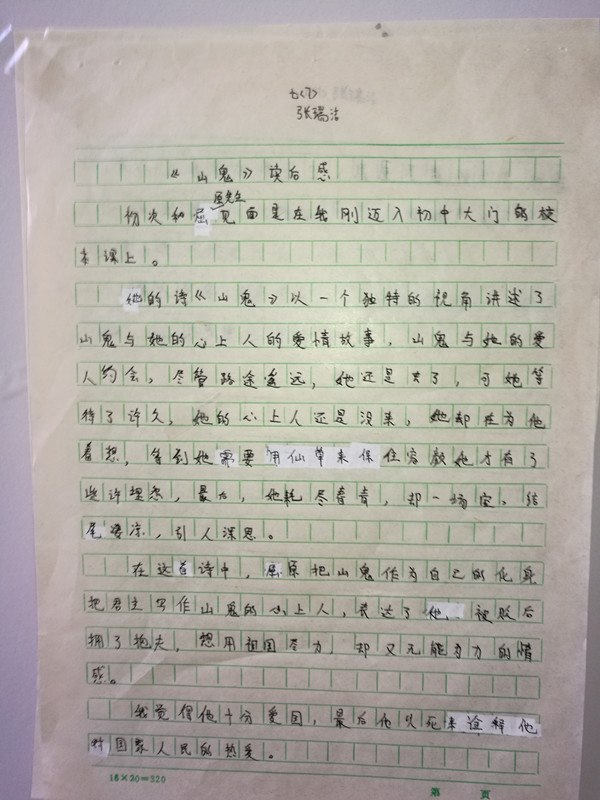 七(7)
张瑞洁
《山鬼》读后感
初次和屈原先生见面是在我刚迈入初中大门的校
本课上。
他的诗《山鬼》以一个独特的视角讲述了
山鬼与她的心上人的爱情故事,山鬼与她的爱
人约会,尽管路途遥远,她还是去了,可她等
待了许久,她的心上人还是没来,她却在为他
着想,等到她需要用仙草来保住容颜她才有了
些许埋怨,最后,她耗尽青春,却一场空。结
尾凄凉,引人深思。
在这首诗中,屈原把山鬼作为自己的化身
把君主写作山鬼的心上人,表达了他 被贬后
拥了抱夫,想用祖国尽力,却又无能为力的情
感。
我觉得他十分爱国,最后他以死来诠释他
对国家人民的热爱。
18×20=320
第 页